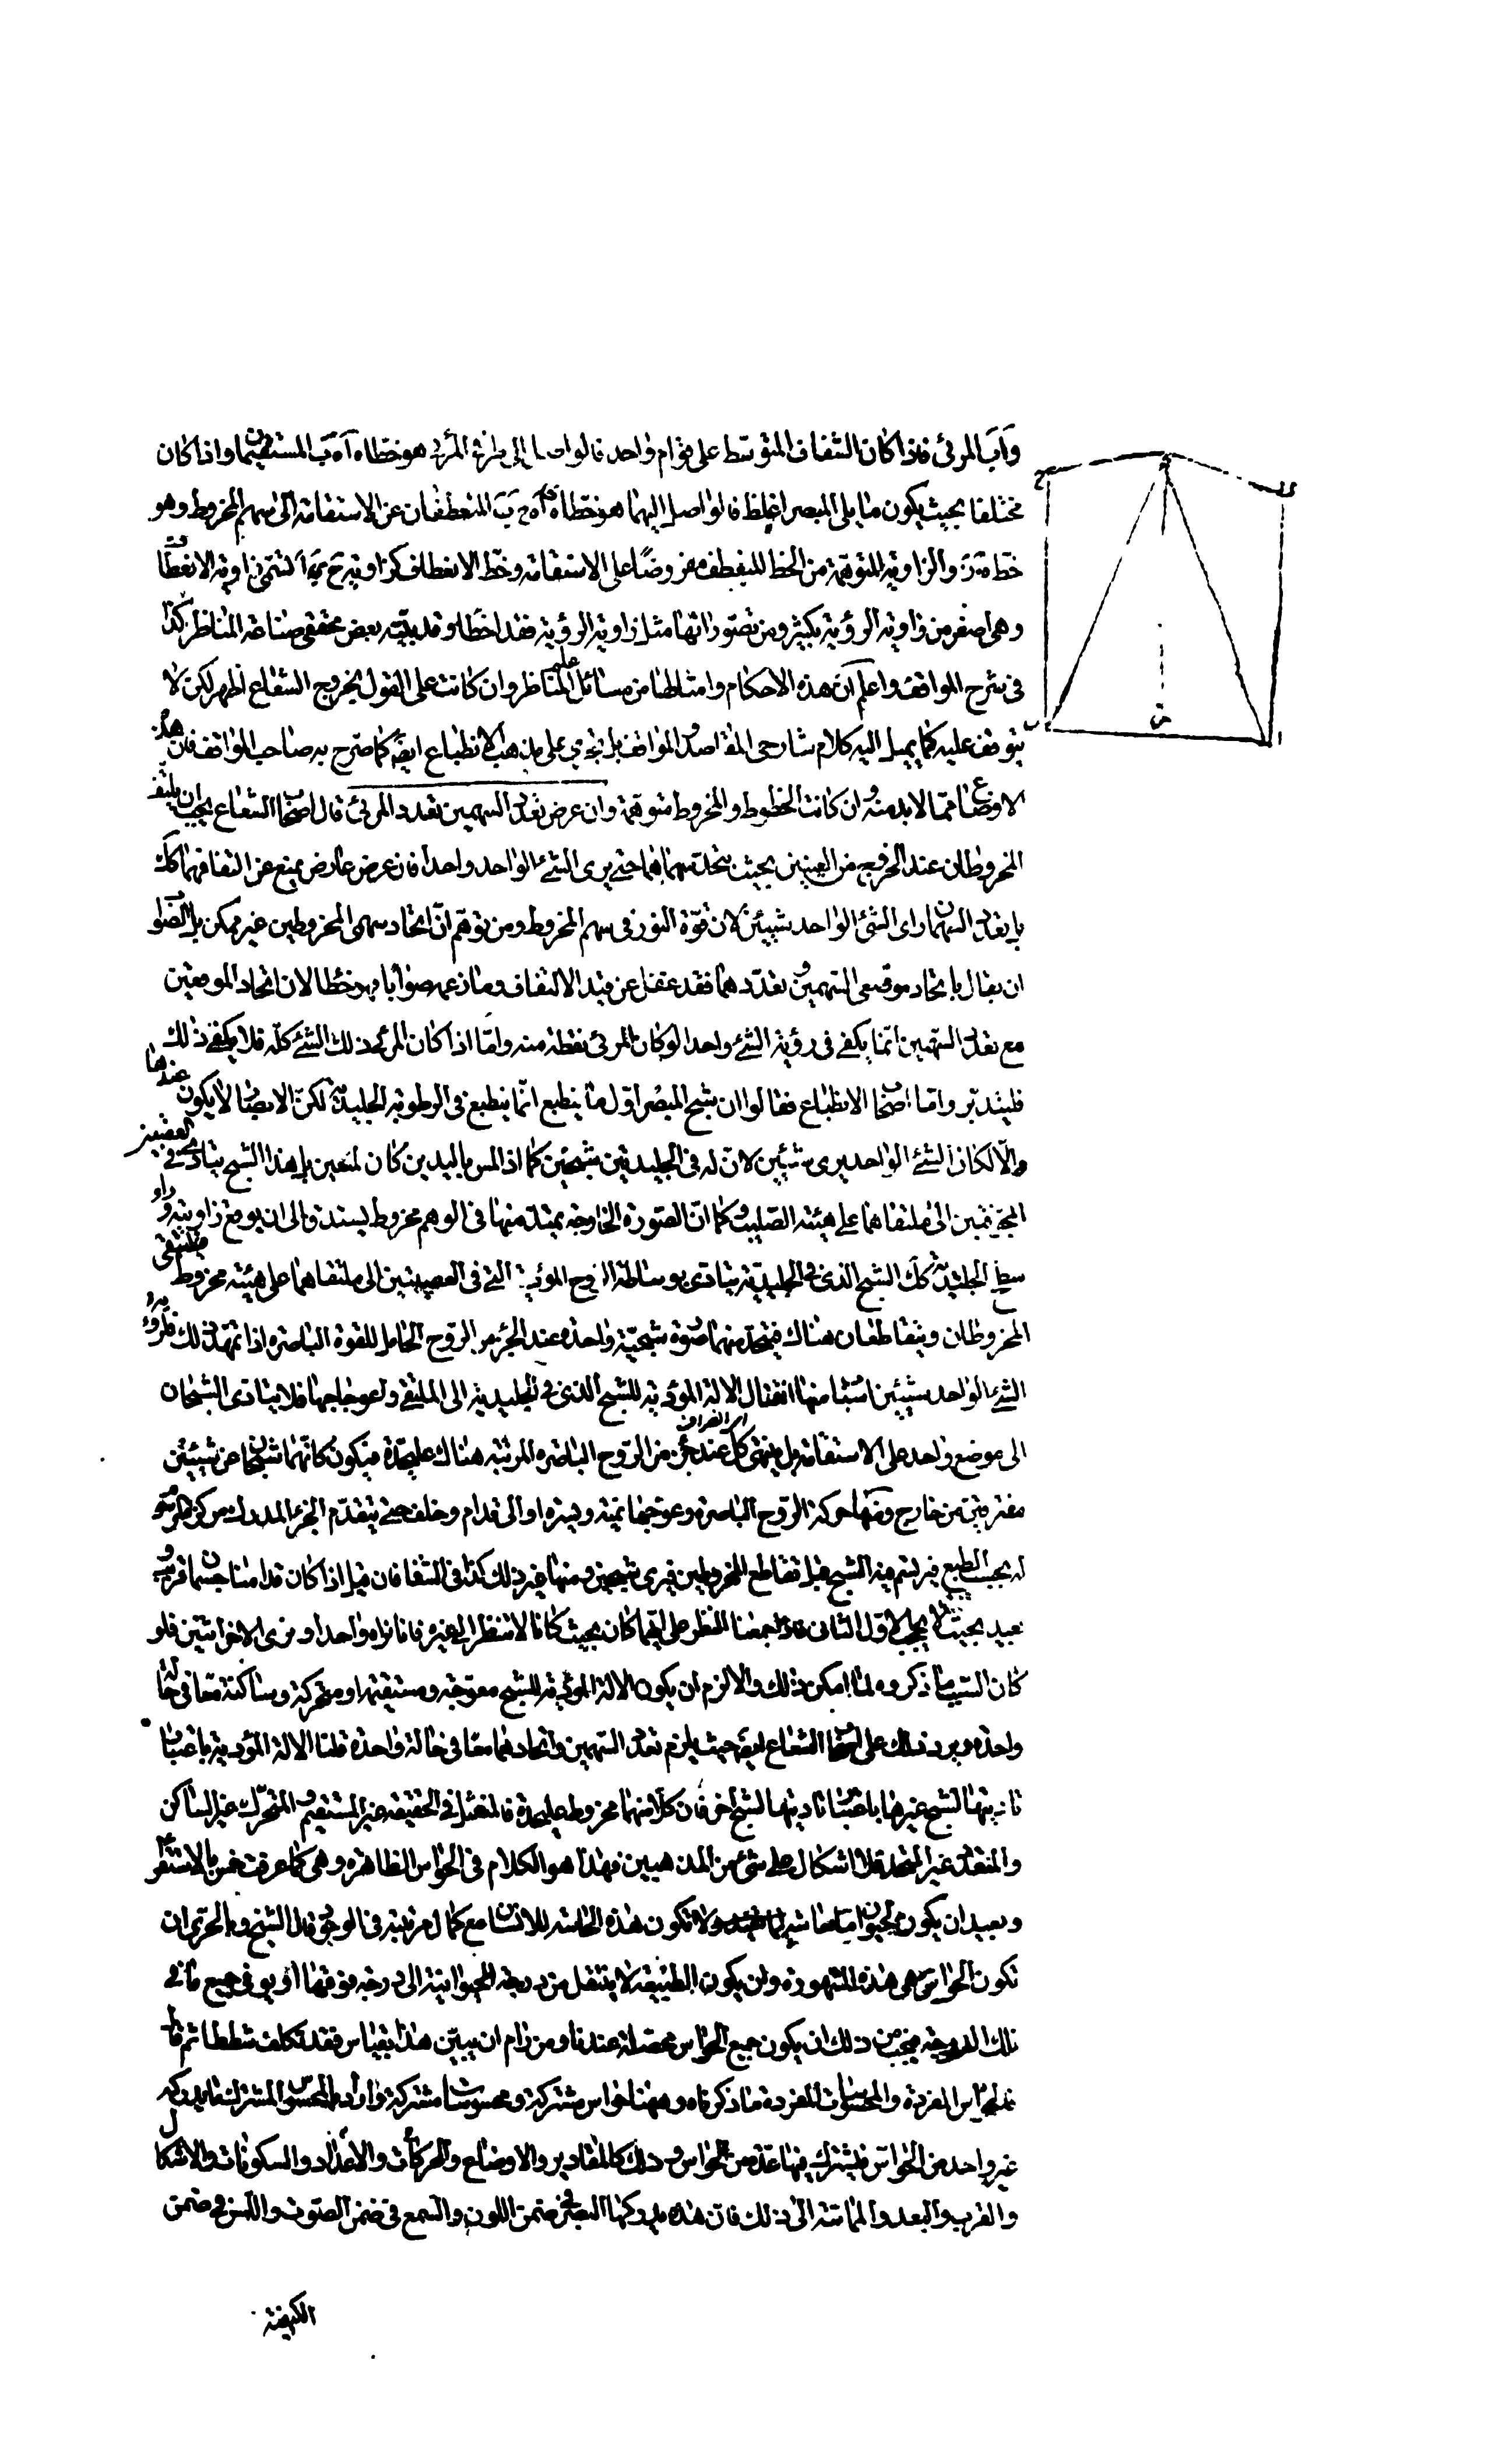 وَاَبَ المرئى فاذا كان الشفاف المتوسط على قوام واحد فالواصل الى طرفى المرئى هو خطاه اَ ه بَ المستقيمان واذا كان
مختلفا بحيث يكون ما يلى المبصر اغلظ فالواصل اليهما هو خطاه المنعطفان عن الاستقامة الى سهم المخروط وهو
خط والزاوية المتوهمة من الخط المنعطف مفروضًا على الاستقامة وخط الانعطاف كزاوية تسمى زاوية الانعطاف
وهى اصغر من زاوية الرؤية بكثير ومن تصور انها مثل زاوية الرؤية فقد اخطا وقد بينه بعض محققى صناعة المناظر كذا
فى شرح المواقف واعلم ان هذه الاحكام وامثالها من مسائل علم المناظر وان كانت على القول بخروج الشعاع اظهر لكن لا
يتوقف عليه كما يميل اليه كلام شارحى المقاصد والمواقف بل يجرى على مذهب الانطباع ايضًا كما صرح به صاحب المواقف فان هذه
الاوضاع مما لابد منه وان كانت الخطوط والمخروط متوهمة وان عرض تعدد السهمين تعدد المرئى قال اصحاب الشعاع يجب ان يلتقى
المخروطان عند الخروج من العينين بحيث يتحد سهماهما حتى يرى الشئ الواحد واحدا فان عرض عارض يمنع عن التقائهما كك
بل يتعدد السهمان راى الشئ الواحد شيئين لان قوة النور فى سهم المخروط ومن توهم انّ اتحاد سهمى المخروطين غير ممكن بل الصواب
ان يقال باتحاد موقعى السهمين وتعددهما فقد غفل عن قيد الالتفاف وما زعمه صوابا فهو خطا لان اتحاد الموقعين
مع تعدد السهمين انما يكفى فى رؤية الشئ واحدا لو كان المرئى نقطة منه واما اذا كان المرئى ذلك الشئ كله فلا يكفى ذلك
فليتدبر واما اصحاب الانطباع فقالوا ان شبح المبصر اول ما ينطبع انما ينطبع فى الرطوبة الجليدية لكن الابصار لا يكون عندها
والا لكان الشئ الواحد يرى شيئين لان له فى الجليديتين شبحين كما اذا لمس باليدين كان لمسين بل هذا الشبح يتادى فى العصبتين
المجوفتين الى ملتقاهما على هيئة الصليب وكما ان الصورة الخارجة يمتد منها فى الوهم مخروط يستدق الى ان يوقع زاويته وراء
سطح الجليدية كك الشبح الذى فى الجليدية يتادى بوساطة الروح المؤدية التى فى العصبتين الى ملتقاهما على هيئة مخروط فيلتقى
المخروطان ويتقاطعان هناك فيتحد منهما صورة شبحية واحدة عند الجزء من الروح الحامل للقوة الباصرة اذا تمهد ذلك فلرؤية
الشئ الواحد شيئين اسباب منها انفتال الآلة المؤدية للشبح الذى فى الجليدية الى الملتقى واعوجاجها فلا يتادى الشبحان
الى موضع واحد على الاستقامة بل ينتهى كل عند جزء من الروح الباصرة المرتبة هناك علىحدة فيكون كانهما شبحان عن شيئين
مفترقين من خارج ومنها حركة الروح الباصرة وتموجها يمنة ويسرة او الى قدام وخلف حتى يتقدم الجزء المدرك مركزه المرسوم
له بحسب الطبع فيرتسم فيه الشبح قبل تقاطع المخروطين فيرى شبحين ومنها غير ذلك كذا فى الشفا فان قيل اذا كان قدامنا جسمان قريب و
بعيد بحيث لا يحجب الاول الثانى فاذا جمعنا النظر على ايهما كان بحيث كانا لا ننظر الى غيره فانا نراه واحدا ونرى الاخر اثنين فلو
كان السبب ما ذكروه لما امكن ذلك والا لزم ان يكون الالة المؤدية للشبح معوجة ومستقيمة او متحركة وساكنة معًا فى حالة
واحدة ويرد ذلك على اصحاب الشعاع ايضا حيث يلزم تعدد السهمين واتحادهما معًا فى حالة واحدة قلنا الالة المؤدية باعتبار
تاديتها لشبح غيرها باعتبار تاديتها لشبح اخر فان كلا منهما مخروط عليحدة فالمنفتل فى الحقيقة غير المستقيم والمتحرك غير الساكن
والمتعدد غير المتحد فلا اشكال على شئ من المذهبين فهذا هو الكلام فى الحواس الظاهرة وهى كما عرفت خمس بالاستقراء
وبعيد ان يكون لحيوان ما حاسة ولا تكون هذه الحاسة للانسان مع كمال مرتبته فى الوجود قال الشيخ وبالحرى ان
تكون الحواس هى هذه المشهورة وان يكون الطبيعة لا ينتقل من درجة الحيوانية الى درجة فوقها او يوفى جميع ما فى
تلك الدرجة فيجب من ذلك ان يكون جميع الحواس محصلة عندنا ومن رام ان يبين هذا بقياس فقد تكلف شططا ثم قال
فالحواس المفردة والمحسوسات المفردة ما ذكرناه وههنا حواس مشتركة ومحسوسات مشتركة واراد بالمحسوس المشترك ما يدركه
غير واحد من الحواس فيشترك فيها عدة من الحواس وذلك كالمقادير والاوضاع والحركات والاعداد والسكونات والاشكال
والقرب والبعد والمماسة الى ذلك فان هذه يدركها البصر فى ضمن اللون والسمع فى ضمن الصوت واللمس فى ضمن
الكيفية